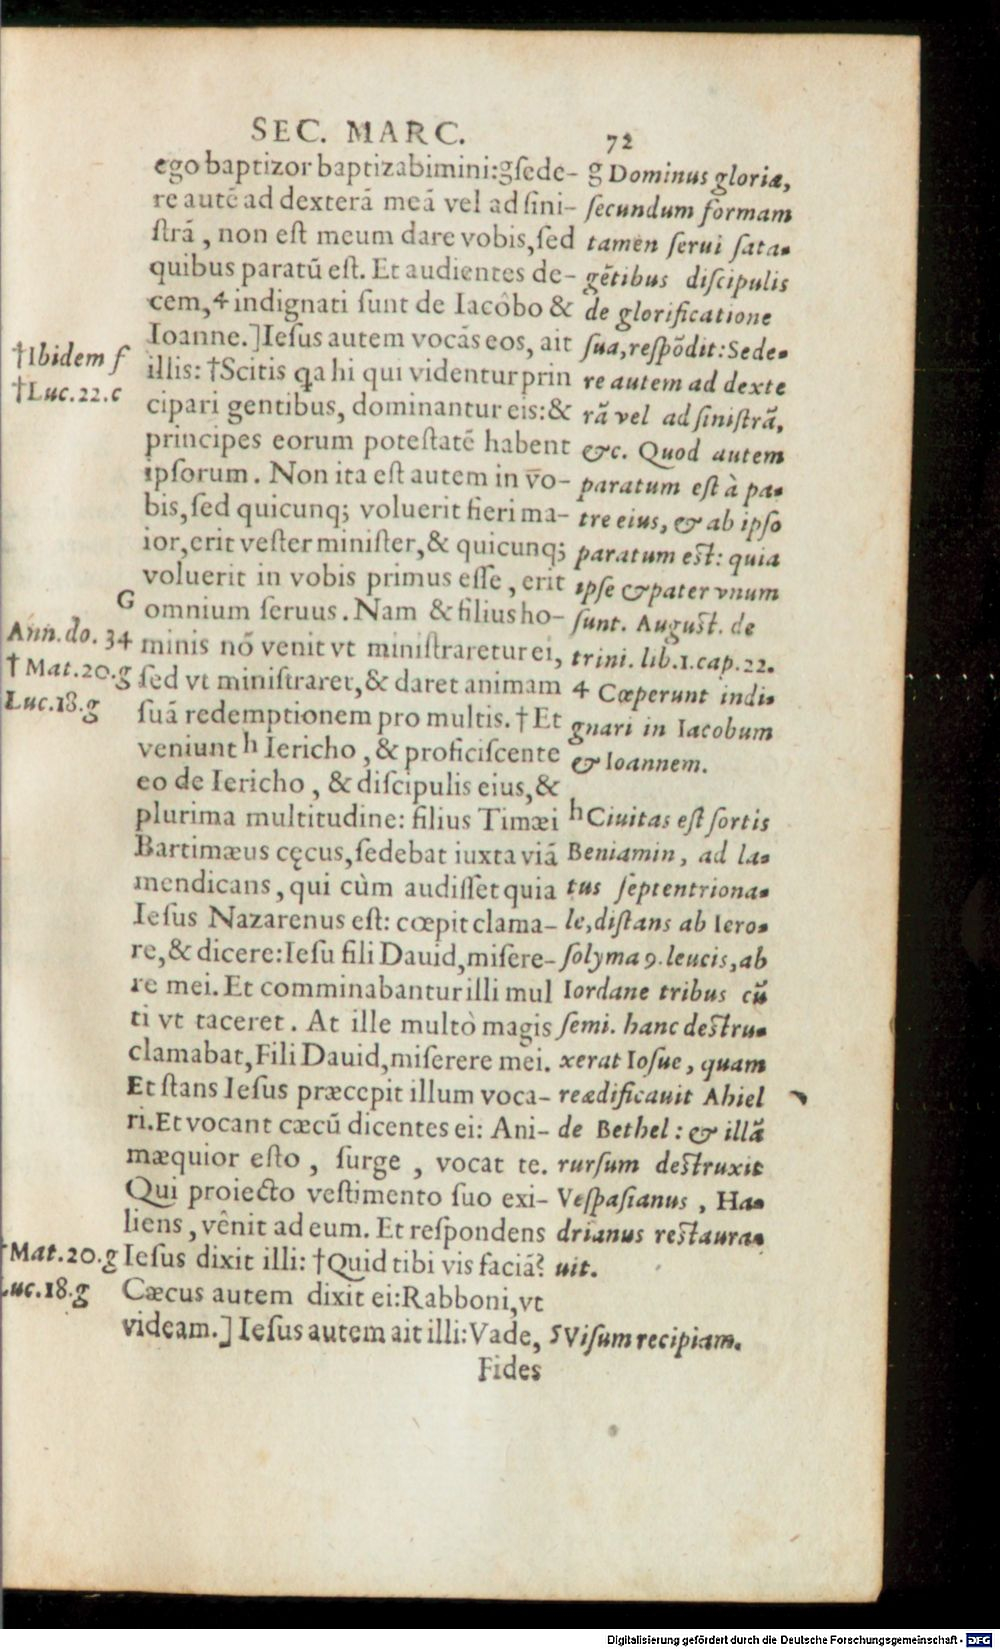 SEC. MARC.
72
ego baptizor baptizabimini:gſede-
re autē ad dexterā meā vel ad ſini-
ſtrā, non eſt meum dare vobis, ſed
quibus paratū eſt. Et audientes de-
cem, 4 indignati ſunt de Iacôbo &
Ioanne.] Ieſus autem vocās eos, ait
illis: †Scitis qa hi qui videntur prin
cipari gentibus, dominantur eis: &
principes eorum poteſtatē habent
ipſorum. Non ita eſt autem in vo-
bis, ſed quicunq; voluerit fieri ma-
ior, erit veſter miniſter, & quicunq;
voluerit in vobis primus eſſe, erit
omnium ſeruus. Nam & filius ho-
minis nō venit vt miniſtraretur ei,
ſed vt miniſtraret, & daret animam
ſuā redemptionem pro multis. †Et
veniunt h Iericho, & proficiſcente
eo de Iericho, & diſcipulis eius, &
plurima multitudine: filius Timæi
Bartimæus cęcus, ſedebat iuxta viā
mendicans, qui cùm audiſſet quia
Ieſus Nazarenus eſt: cœpit clama-
re, & dicere: Ieſu fili Dauid, miſere-
re mei. Et comminabantur illi mul
ti vt taceret. At ille multò magis
clamabat, Fili Dauid, miſerere mei.
Et ſtans Ieſus præcepit illum voca-
ri. Et vocant cæcū dicentes ei: Ani-
mæquior eſto, ſurge, vocat te.
Qui proiecto veſtimento ſuo exi-
liens, vênit ad eum. Et reſpondens
Ieſus dixit illi: †Quid tibi vis faciā?
Cæcus autem dixit ei: Rabboni, vt
videam.] Ieſus autem ait illi: Vade,
Fides
†Ibidem f
†Luc.22.c
G
Ann.do. 34
†Mat.20.g
Luc.18.g
†Mat.20.g
Luc.18.g
g Dominus gloriæ,
ſecundum formam
tamen ſerui ſata-
gētibus diſcipulis
de glorificatione
ſua, reſpōdit: Sede-
re autem ad dexte
rā vel ad ſiniſtrā,
&c. Quod autem
paratum eſt à pa-
tre eius, & ab ipſo
paratum eſt: quia
ipſe & pater vnum
ſunt. Auguſt. de
trini. lib.1.cap.22.
4 Cœperunt indi-
gnari in Iacobum
& Ioannem.
h Ciuitas eſt ſortis
Beniamin, ad la-
tus ſeptentriona-
le, diſtans ab Iero-
ſolyma 9. leucis, ab
Iordane tribus cū
ſemi. hanc deſtru-
xerat Ioſue, quam
reædificauit Ahiel
de Bethel: & illā
rurſum deſtruxit
Veſpaſianus, Ha-
drianus reſtaura-
uit.
5 Viſum recipiam.
Digitalisierung gefördert durch die Deutsche Forschungsgemeinschaft - DFG